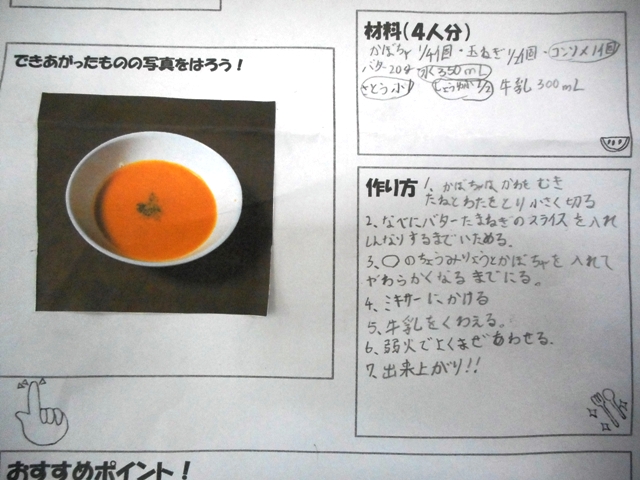 できあがったものの写真をはろう！
材料（4人分）
かぼちゃ 1/4個・玉ねぎ 1/4個・コンソメ1個
バター20g 水350mL
さとう小1 しょうゆ小1/2 牛乳300mL
作り方
1、かぼちゃは、かわをむき
たねとわたをとり小さく切る
2、なべにバターたまねぎのスライスを入れ
しんなりするまでいためる。
3、○のちょうみりょうとかぼちゃを入れて
やわらかくなるまでにる。
4、ミキサーにかける
5、牛乳をくわえる。
6、弱火でよくまぜあわせる。
7、出来上がり!!
おすすめポイント！